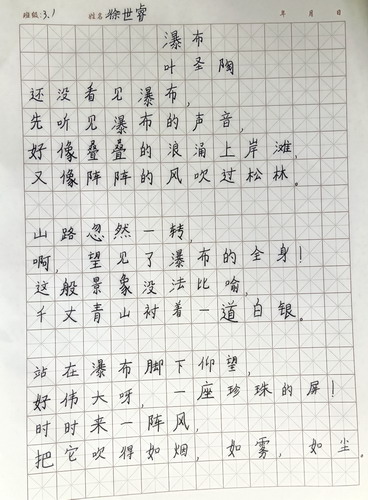 班级:3.1 姓名 徐世睿 年 月 日
瀑布
叶圣陶
还没看见瀑布,
先听见瀑布的声音,
好像叠叠的浪涌上岸滩,
又像阵阵的风吹过松林。
山路忽然一转,
啊,望见了瀑布的全身!
这般景象没法比喻,
千丈青山衬着一道白银。
站在瀑布脚下仰望,
好伟大呀,一座珍珠的屏!
时时来一阵风,
把它吹得如烟,如雾,如尘。